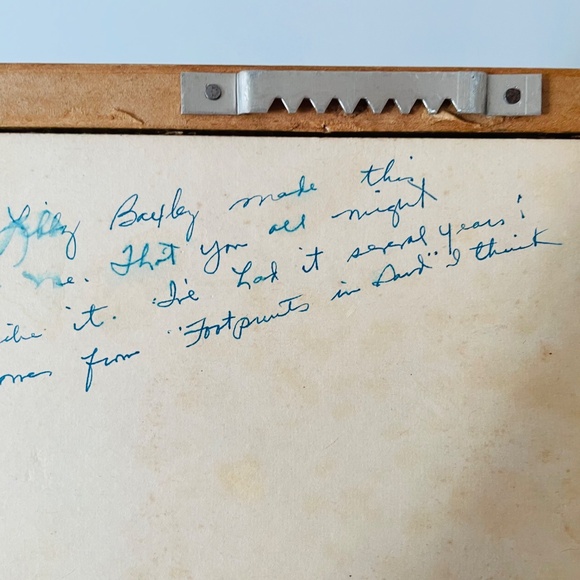 Libby Baxley made this
me. Thot you all might
like it. I've had it several years!
comes from "Footprints in Sand" I think